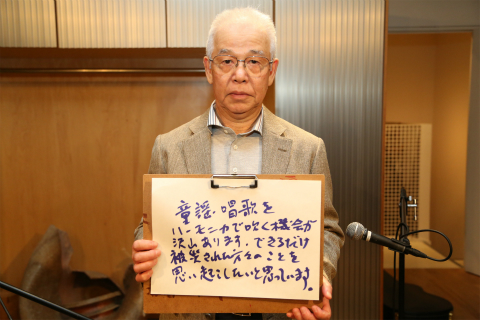 童謡・唱歌を
ハーモニカで吹く機会が
沢山あります。できるだけ
被災された方々のことを
思い起こしたいと思っています。